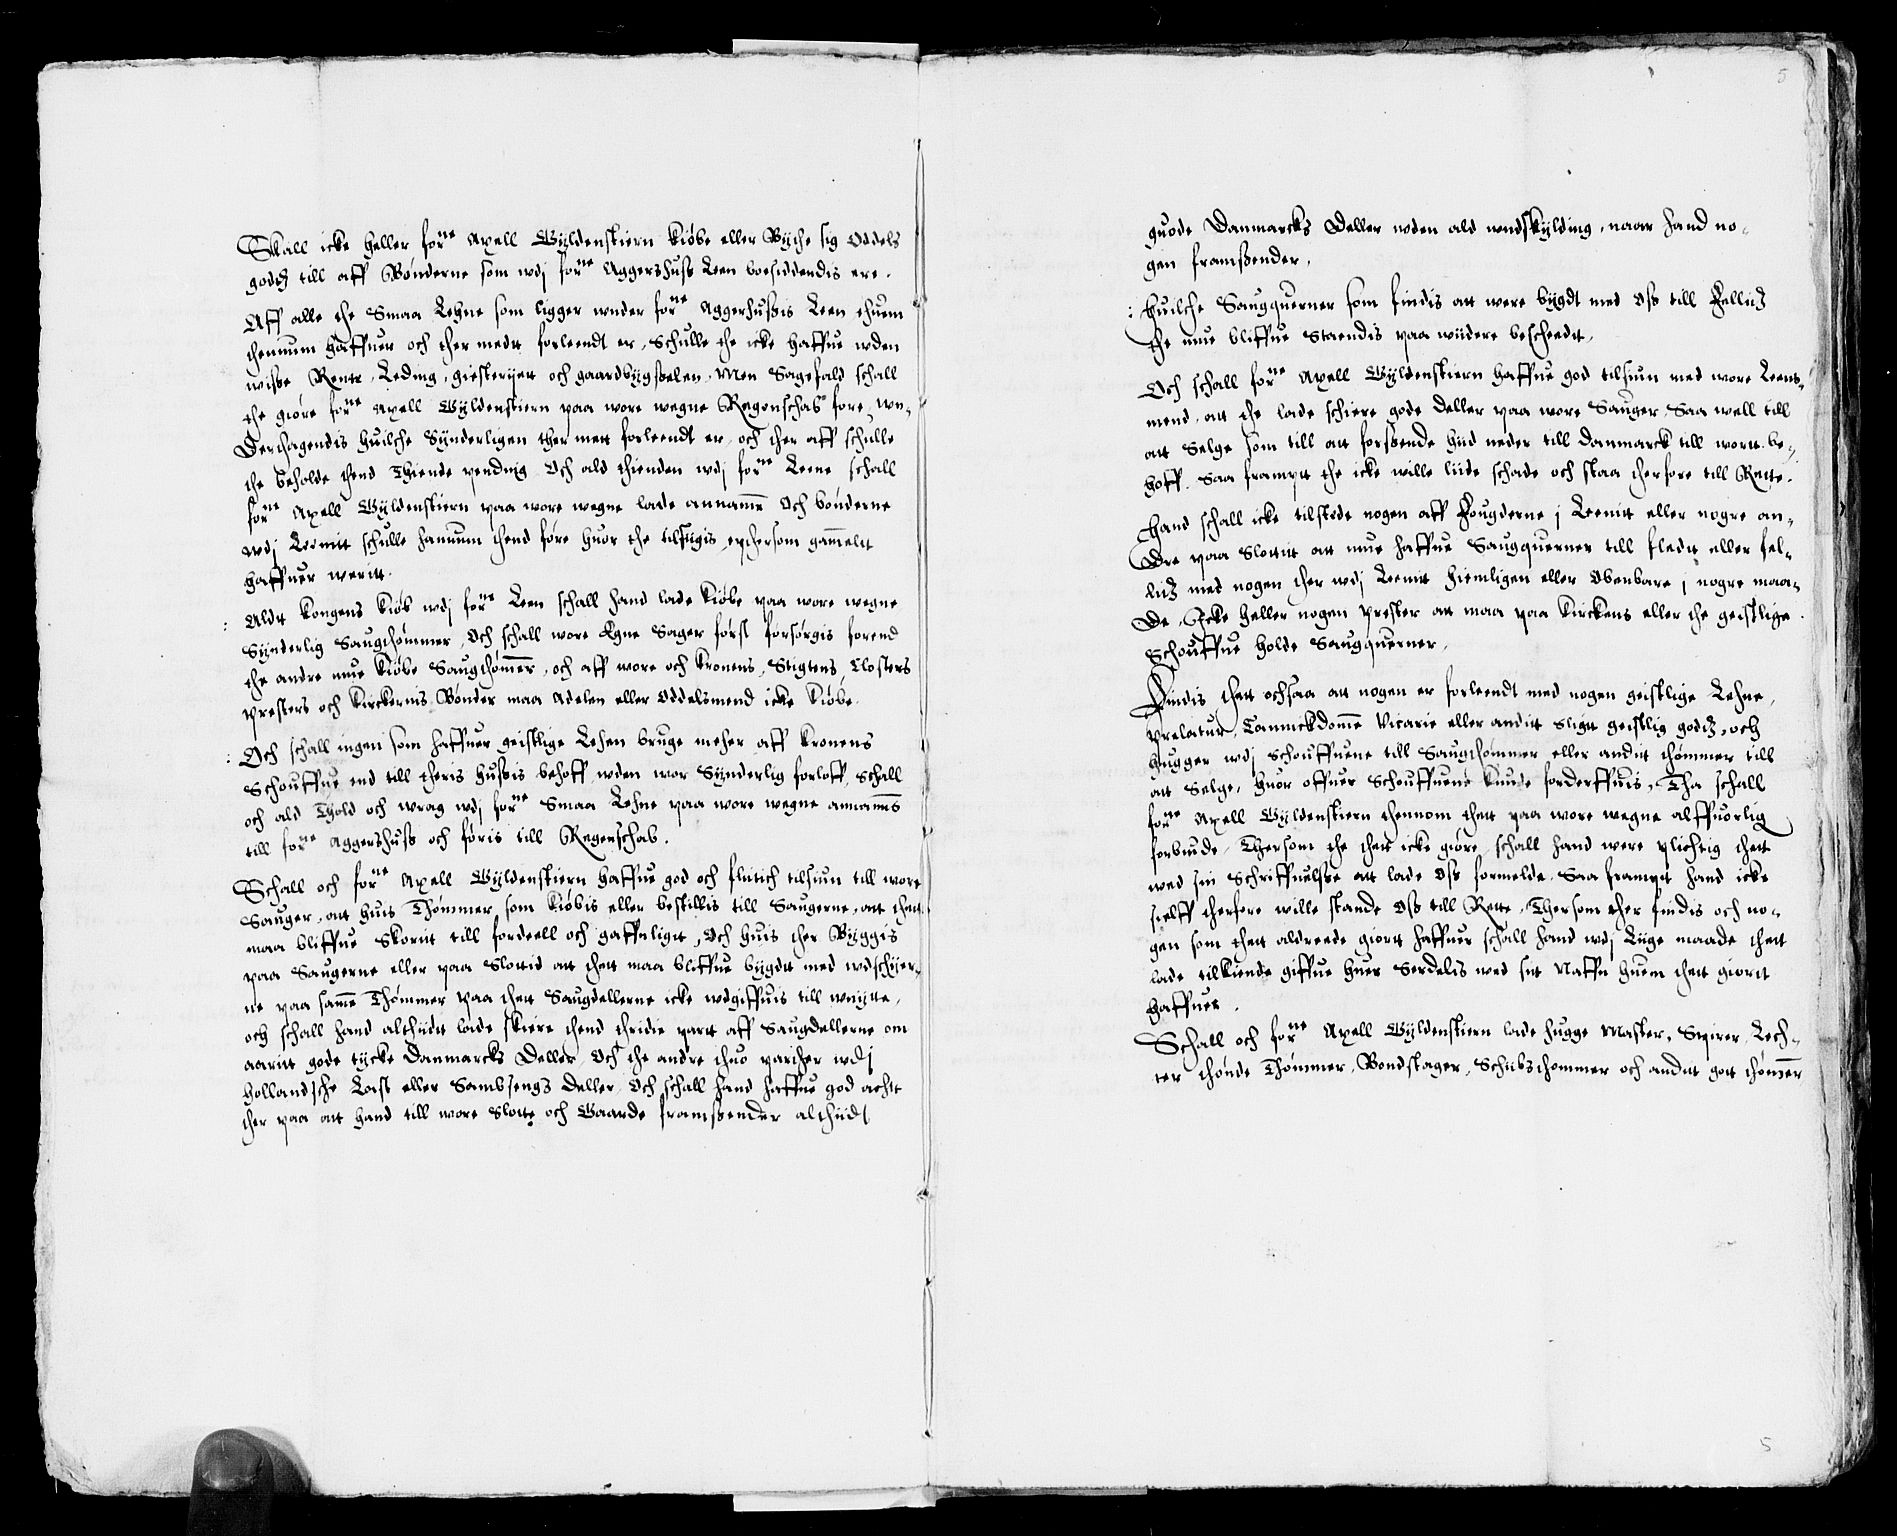 Skall icke heller forne Axell Gyldenstiern kiøbe eller Byche sig Oddels
godtz till aff Bønderne som wdj forne Aggershuss Leen boesiddendis ere.
Aff alle the Smaa Lehne som ligger wnder forne Aggershussis Leen ehuem
thennum haffuer och ther medtt forleendt er, Schulle the icke haffue wden
wisse Rente, Leding, giesterijett och gaardbygsselen, Men Sagefald schall
the giøre forne Axell Gyldenstiern paa wore wegne Regenschab fore, wn-
derthagendis huilche Synderligen ther mett forleendt er, och ther aff schulle
the beholde thend Thiende pending Och ald thienden wdj forne Leene schall
forne Axell Gyldenstiern paa wore wegne lade annamme Och bønderne
wdj Leenitt schulle hannum thend føre huor the tilsigis, epthersom gammelt
haffuer weritt.
: Aldt kongens kiøb wdj forne Leen schall hand lade kiøbe paa wore wegne
Synderlig Saugthømmer, Och schall wore Egne Sager først forsørgis førend
the andre mue kiøbe Saugthømmer, och aff wore och kronens, Stigtens, Closters
presters och kirckernis Bønder maa Adelen eller Oddelsmend icke kiøbe.
: Och schall ingen som haffuer geistlige Lehen bruge meher aff kronens
Schouffue end till theris hussis behoff wden wor Synderlig forloff, Schall
och ald Thold och wrag wdj forne Smaa Lehne paa wore wegne annammis
till forne Aggershuss och føris till Regenschab.
Schall och forne Axell Gyldenstiern haffue god och flittich tilsiun till wore
Sauger, att huis Thømmer som kiøbis eller bestillis till Saugerne, att thett
maa bliffue Skoritt till fordeell och gaffnligtt, Och huis ther Byggis
paa Saugerne eller paa Slottid att thett maa bliffue bygdtt med wdschyer-
ne paa samme Thømmer paa thett Saugdellerne icke wdgiffuis till wnytte,
och schall hand althiidtt lade skiere thend thridie partt aff Saugdellerne om
aaritt gode tycke Danmarcks Deller, Och the andre thuo parther wdj
hollandsche Last eller Sambsengs deller Och schall hand haffue god achtt
ther paa att hand till wore Slotte och Gaarde framssender althiid
guode Danmarcks Deller wden ald wndskylding, naar hand no-
gen framssender.
: Huilche Saugquerner som findis att were bygdt med Oss till Fellitz
the mue bliffue Staendis paa wiidere bescheedtt,
Och schall forne Axell Gyldenstiern haffue god tilsiun med wore Leens-
mend, att the lade schiere gode deller paa wore Sauger, Saa well till
att Selge som till att forssende hiid neder till Danmarck till wortt be-
hoff. Saa frampt the icke wille liide schade och staa therfore till Rette.
Hand schall icke tilstede nogen aff Fougderne j Leenitt eller nogre an-
dre paa Slottitt att mue haffue Saugquerner till fledtt eller fel-
litz med nogen ther wdj Leenitt hiemligen eller Obenbare j nogre maa-
de, Icke heller nogen prester att maa paa kirckens eller the geistlige
Schouffue holde Saugquerner,
Findis thett ochsaa att nogen er forleendt med nogen geistlige Lehne,
prelatur, Cannickdomme Vicarie eller anditt sligtt geistlig godtz, och
hugger wdj Schouffuene till Saugthømmer eller anditt thømmer till
att Selge, huor offuer Schouffuene kunde forderffuis, Tha schall
forne Axell Gyldenstiern thennom thett paa wore wegne alffuorlig
forbiude, Thersom the thett icke giøre, schall hand were plichtig thett
wed sin Schriffuelsse att lade Oss formelde, Saa frampt hand icke
sielff therfore wille stande Oss till Rette, Thersom ther findis och no-
gen som thett aldreede giortt haffuer schall hand wdj Liige maade thett
lade tilkiende giffue huer Serdelis wed sitt Naffn huem thett giortt
haffuer.
Schall och forne Axell Gyldenstiern lade hugge Master, Spirer, Lech-
ter thønde Thømmer, Bondstager, Schibsthømmer och anditt gott thømmer